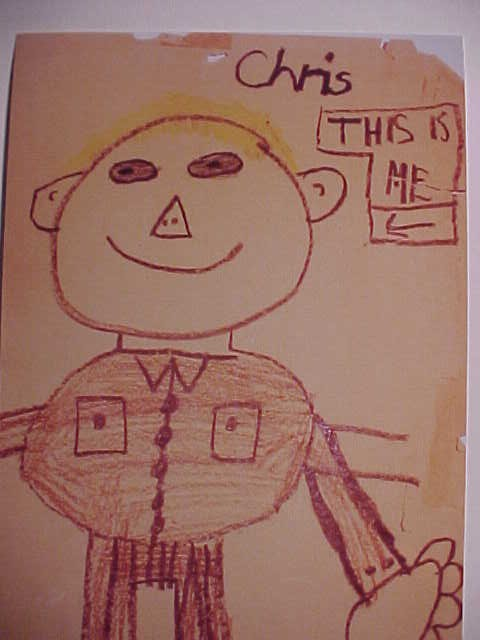 Chris
THIS IS
ME